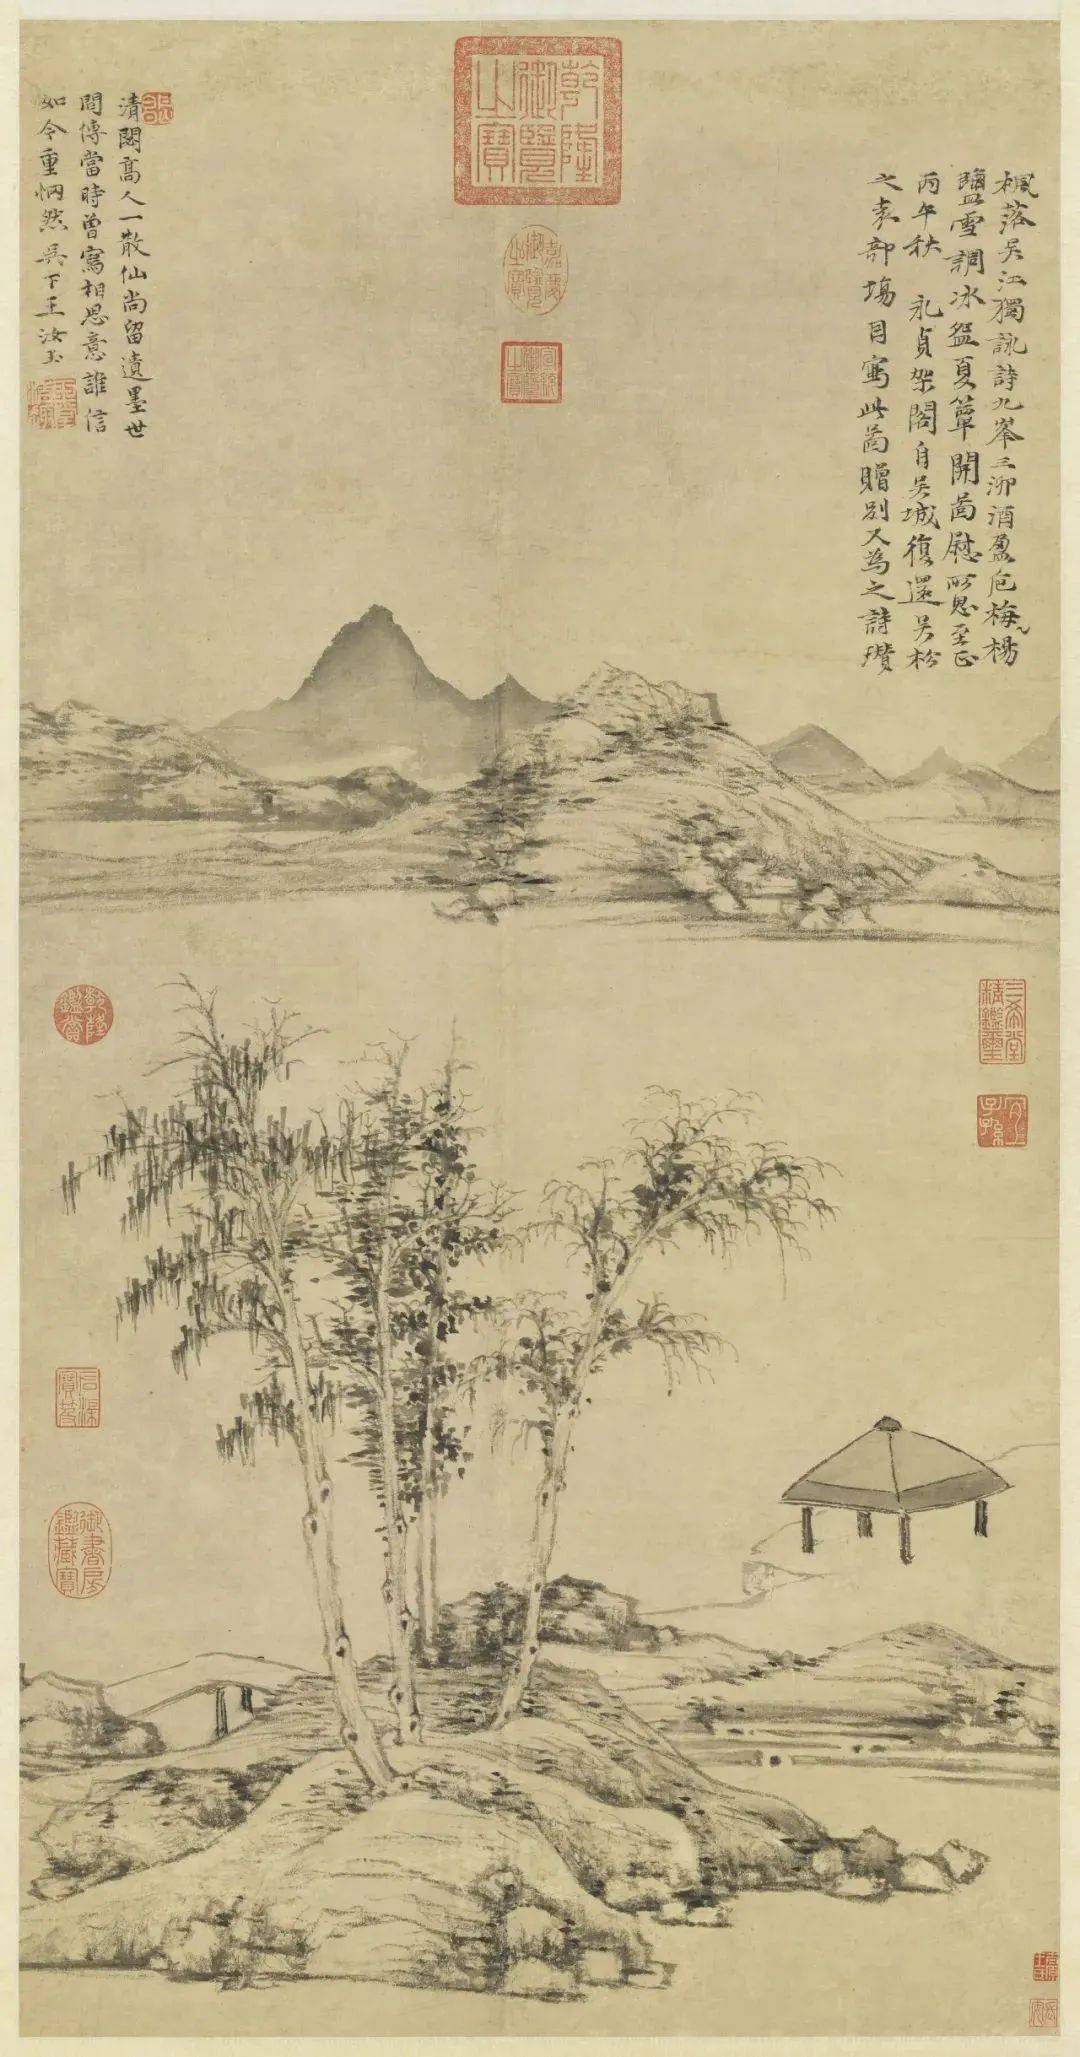 楓落吳江獨詠詩九峯三泖酒盈巵梅楊
鹽雪調冰盌夏簟開啚慰所思至正
丙午秋 永貞架閣自吳城復還吳松
之袁部塲因寫此啚贈別又為之詩瓚
乾隆御覽之寶
嘉慶御覽之寶
宣統御覽之寶
清閟髙人一散仙尚留遺墨世
間傳當時曾寫相思意誰信
如今重惘然吳下王汝玉
三希堂精鑑璽
宜子孫
乾隆鑑賞
石渠寶笈
御書房鑑藏寶